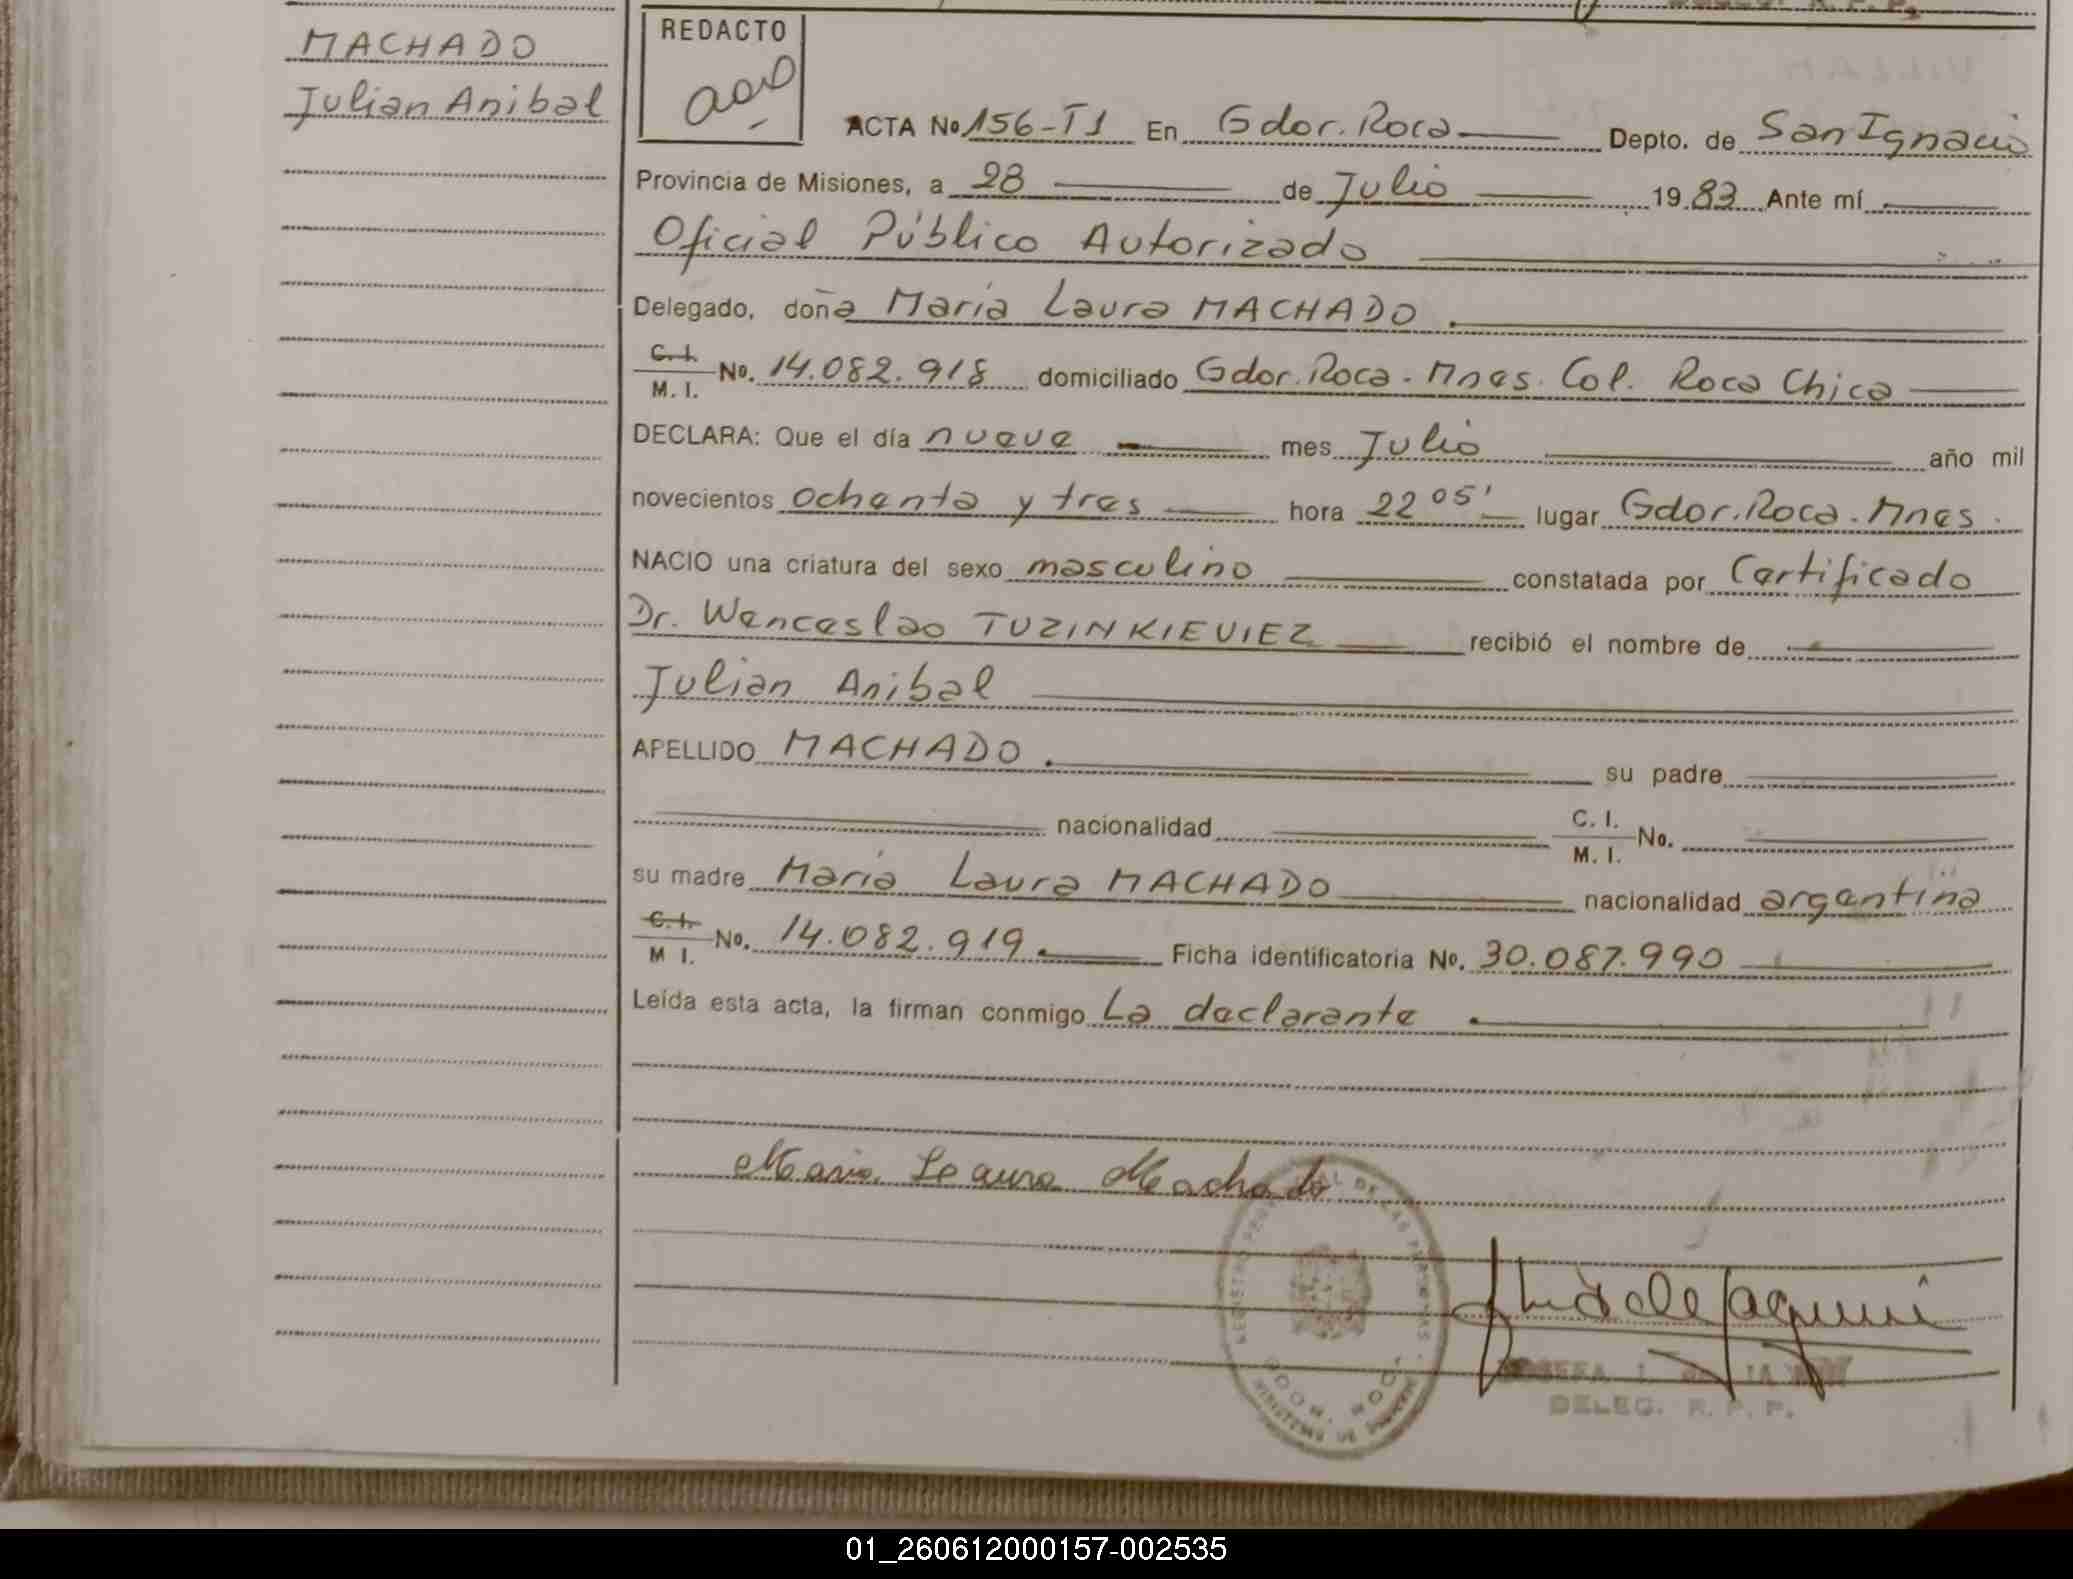 MACHADO
Julian Anibal
REDACTO
ACTA No 156-T1 En Gdor. Roca Depto. de San Ignacio
Provincia de Misiones, a 28 de Julio 1983 Ante mí
Oficial Público Autorizado
Delegado, doña María Laura MACHADO.
C.I. M.I. No. 14.082.918 domiciliado Gdor. Roca - Mnes. Col. Roca Chica
DECLARA: Que el día nueve mes Julio año mil
novecientos ochenta y tres hora 22 05' lugar Gdor. Roca - Mnes.
NACIO una criatura del sexo masculino constatada por Certificado
Dr. Wenceslao TUZINKIEVIEZ recibió el nombre de
Julian Anibal
APELLIDO MACHADO. su padre
nacionalidad C. I. M. I. No.
su madre María Laura MACHADO nacionalidad argentina
C.I. M I. No. 14.082.919. Ficha identificatoria No. 30.087.990
Leída esta acta, la firman conmigo La declarante.
Maria Laura Machado
DELEG. R. P. P.
01_260612000157-002535